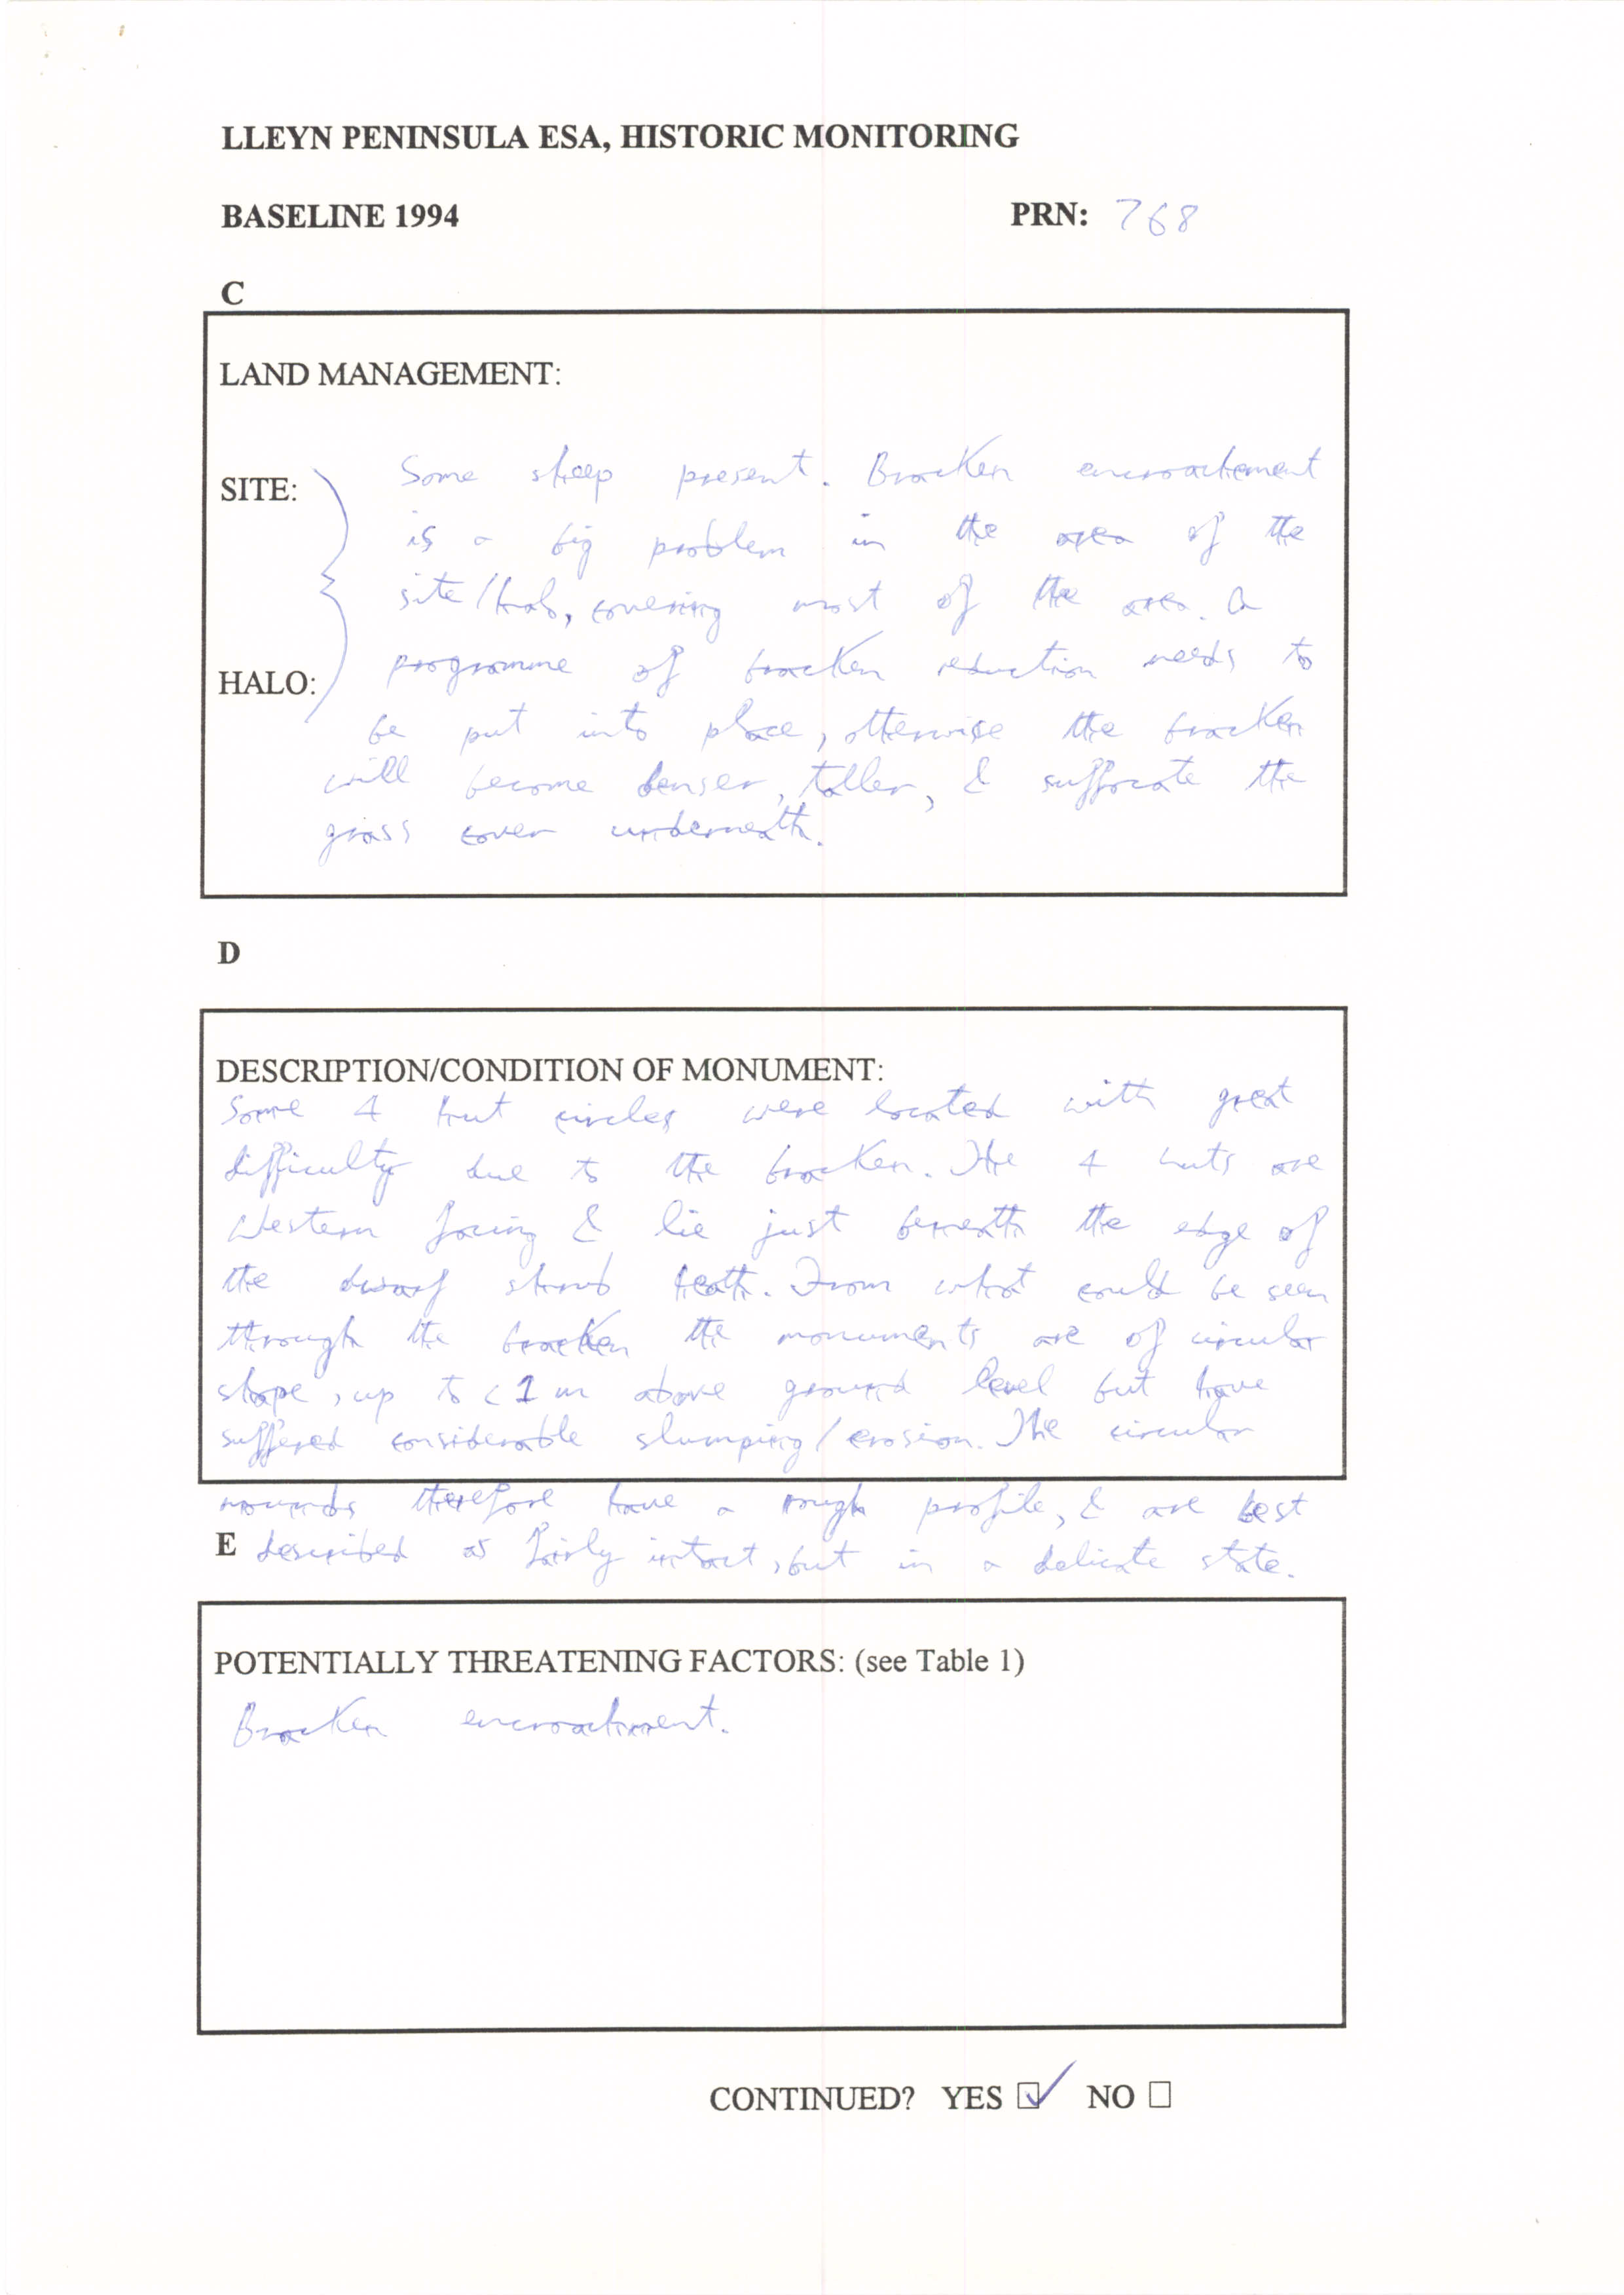 LLEYN PENINSULA ESA, HISTORIC MONITORING
BASELINE 1994 PRN: 768
C
LAND MANAGEMENT:
SITE: Some sheep present. Bracken encroachement
is a big problem in the area of the
site/halo, covering most of the area. A
HALO: programme of bracken reduction needs to
be put into place, otherwise the bracken
will become denser, taller, & suffocate the
grass cover underneath.
D
DESCRIPTION/CONDITION OF MONUMENT:
Some 4 hut circles were located with great
difficulty due to the bracken. The 4 huts are
Western facing & lie just beneath the edge of
the dwarf shrub heath. From what could be seen
through the bracken the monuments are of circular
shape, up to <1m above ground level but have
suffered considerable slumping/erosion. The circular
mounds therefore have a rough profile, & are best
E described as fairly intact, but in a delicate state.
POTENTIALLY THREATENING FACTORS: (see Table 1)
Bracken encroachment.
CONTINUED? YES ☑ NO ☐